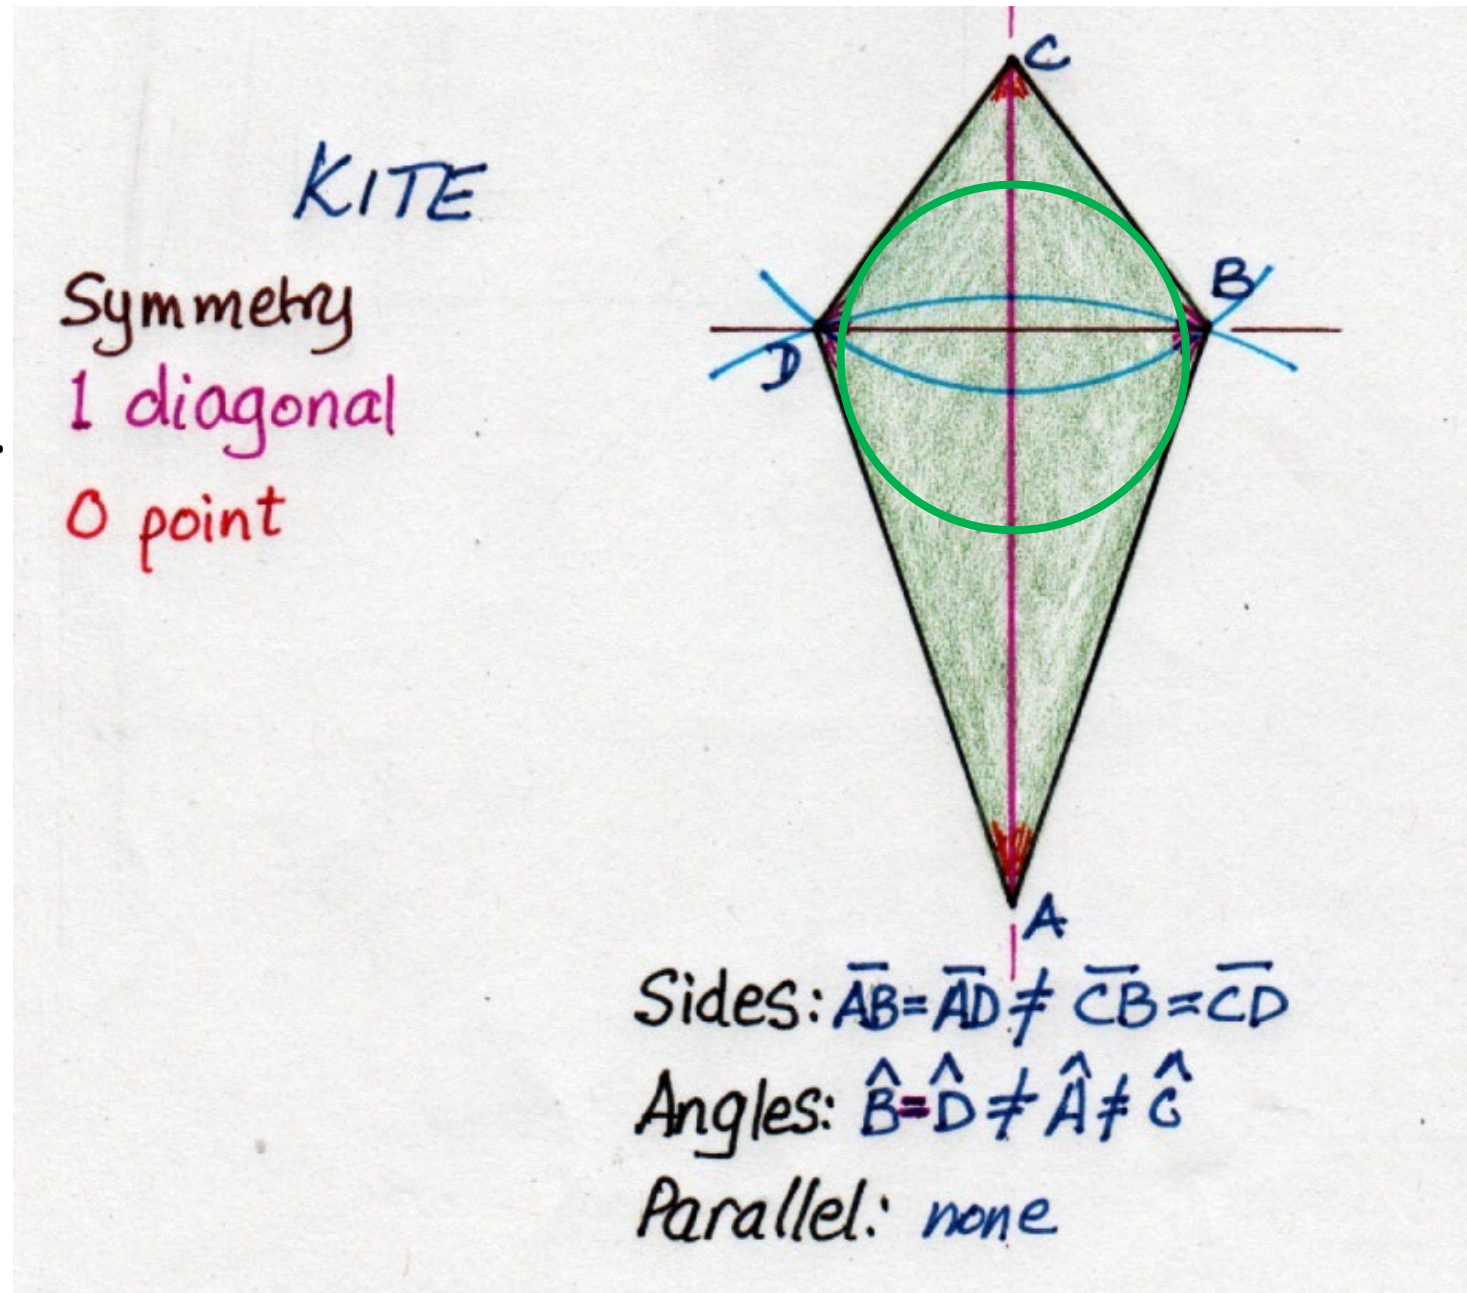 KITE
Symmetry
1 diagonal
0 point
C
B
D
A
Sides: A̅B̅=A̅D̅ ≠ C̅B̅=C̅D̅
Angles: B̂=D̂≠Â≠Ĉ
Parallel: none